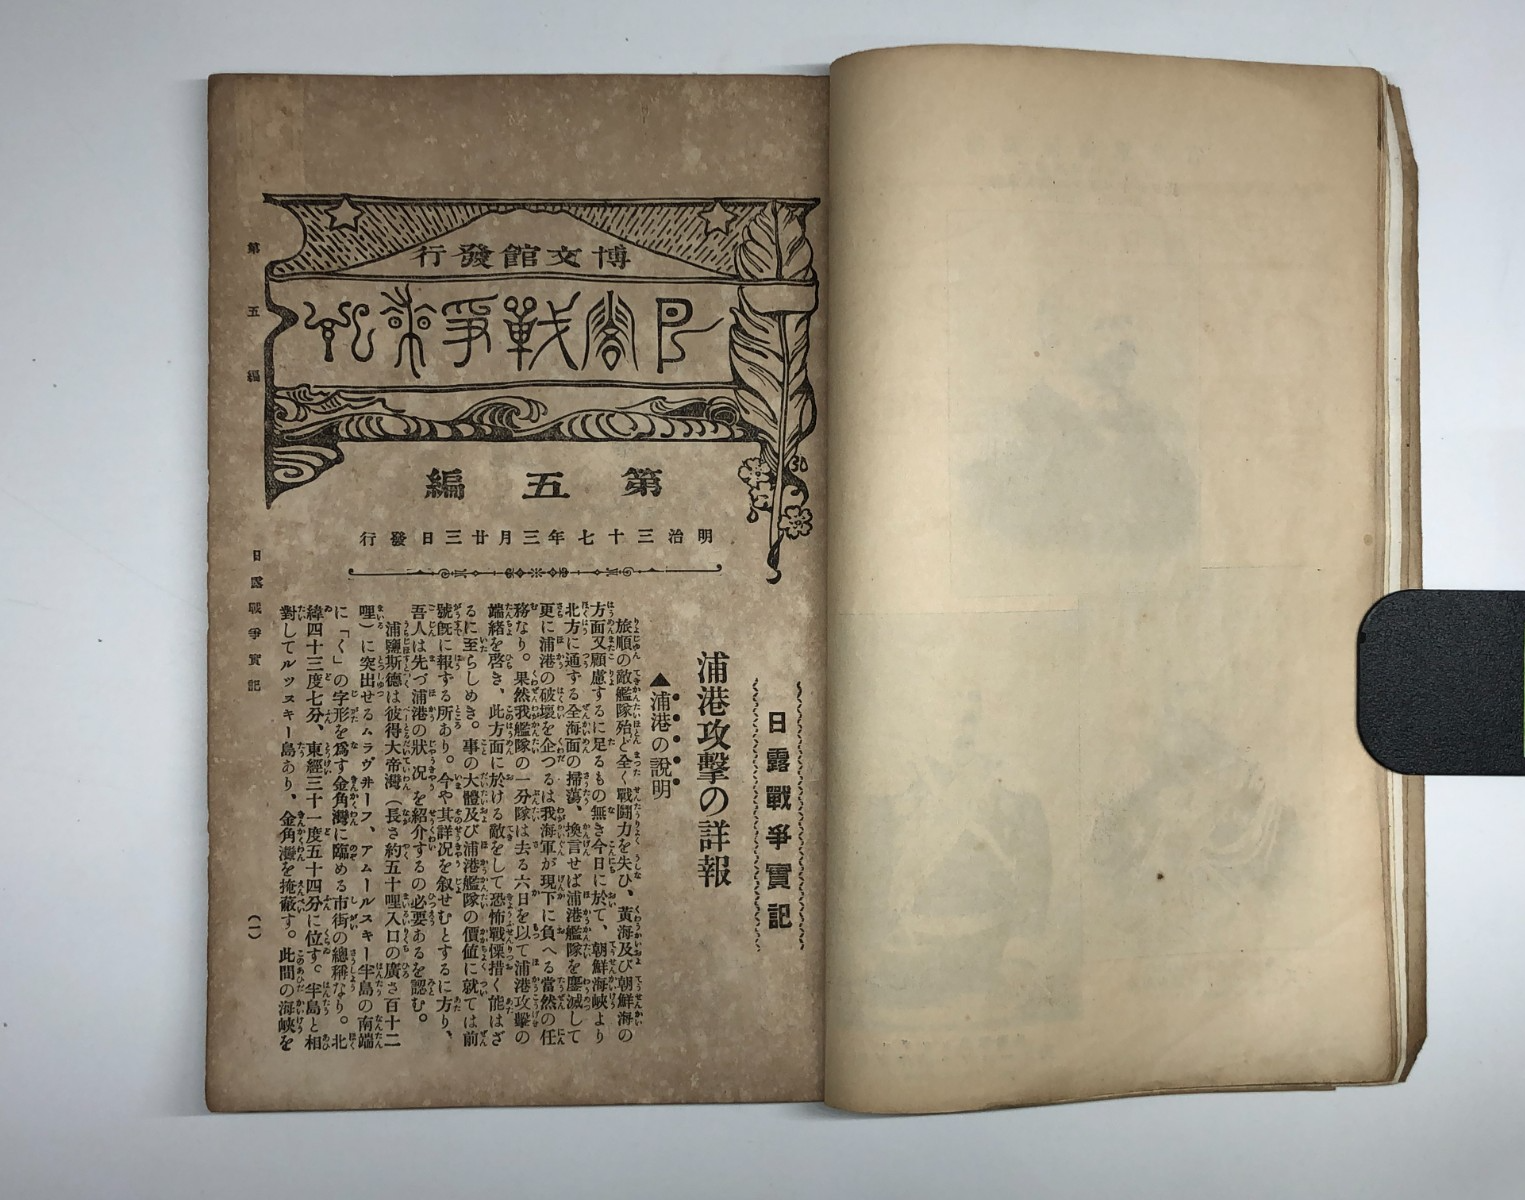 博文館發行
日露戰爭實記
第五編
明治三十七年三月廿三日發行
日露戰爭實記
浦港攻擊の詳報
▲浦港の說明
旅順の敵艦隊殆ど全く戰鬪力を失ひ、黃海及び朝鮮海の
方面又顧慮するに足るもの無き今日に於て、朝鮮海峽より
北方に通ずる全海面の掃蕩、換言せば浦港艦隊を鏖滅して
更に浦港の破壞を企つるは我海軍が現下に負へる當然の任
務なり。果然我艦隊の一分隊は去る六日を以て浦港攻擊の
端緖を啓き、此方面に於ける敵をして恐怖戰慄措く能はざ
るに至らしめき。事の大體及び浦港艦隊の價値に就ては前
號既に報する所あり。今や其詳況を叙せむとするに方り、
吾人は先づ浦港の狀況を紹介するの必要あるを認む。
浦鹽斯德は彼得大帝灣(長さ約五十哩入口の廣さ百十二
哩)に突出せるムラヴ井ーフ、アムールスキー半島の南端
に「く」の字形を爲す金角灣に臨める市街の總稱なり。北
緯四十三度七分、東經三十一度五十四分に位す。半島と相
對してルッスキー島あり、金角灣を掩蔽す。此間の海峽を
第五編
日露戰爭實記
(一)